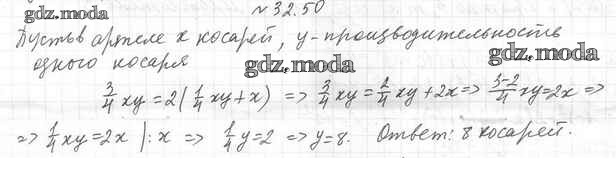 №32.50
gdz.moda
Пусть в артеле x косарей, y - производительность
одного косаря
gdz.moda gdz.moda
3/4 xy = 2(1/4 xy + x) => 3/4 xy = 2/4 xy + 2x => (3-2)/4 xy = 2x =>
=> 1/4 xy = 2x |: x => 1/4 y = 2 => y = 8. Ответ: 8 косарей.